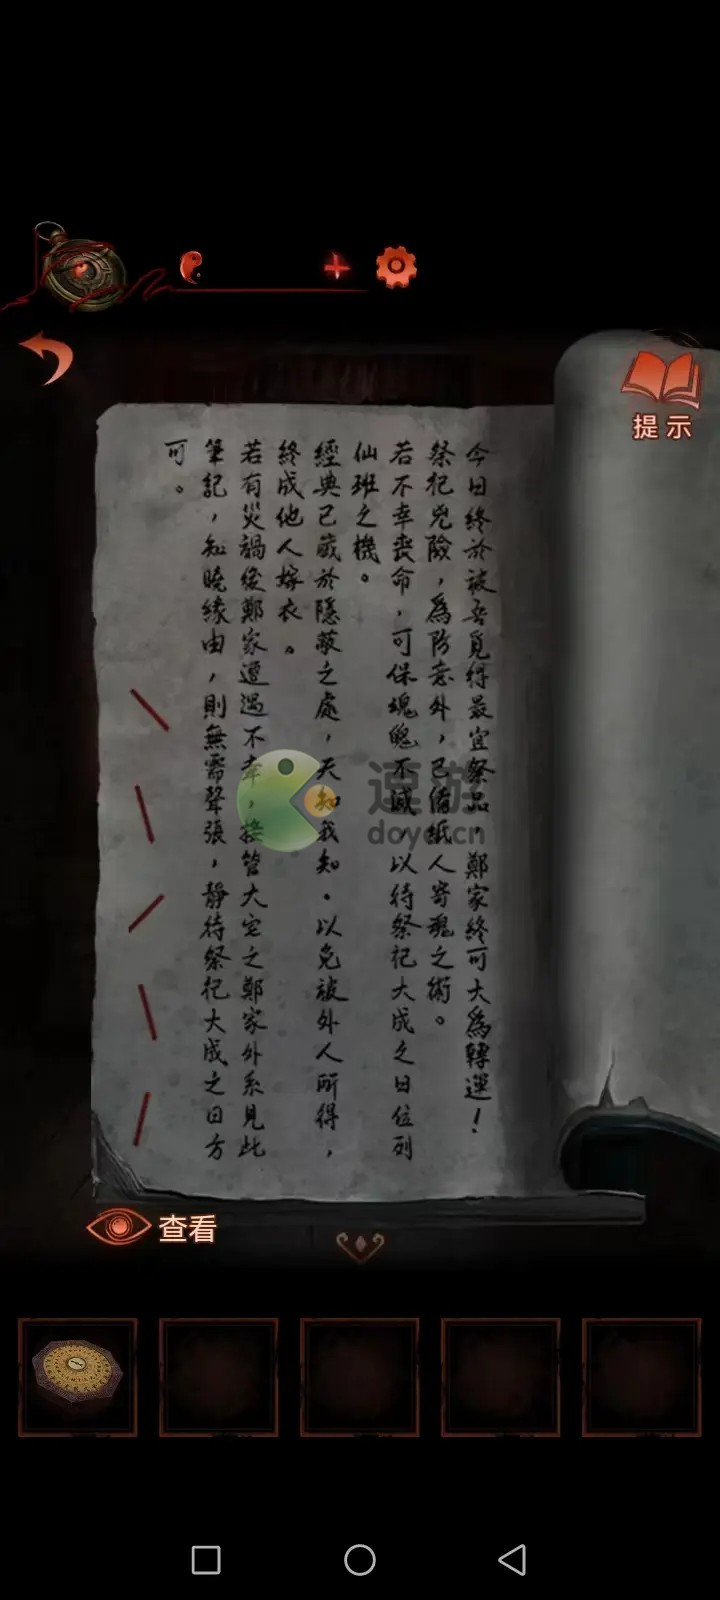 提示
今日終於被吾覓得最宜祭品，鄭家終可大為轉運！
祭祀兇險，為防意外，已備紙人寄魂之術。
若不幸喪命，可保魂魄不滅，以待祭祀大成之日位列
仙班之機。
經典已藏於隱蔽之處，天知我知，以免被外人所得，
終成他人嫁衣。
若有災禍後鄭家遭遇不幸，接管大宅之鄭家外系見此
筆記，知曉緣由，則無需聲張，靜待祭祀大成之日方
可。
逗游
doyo.cn
查看